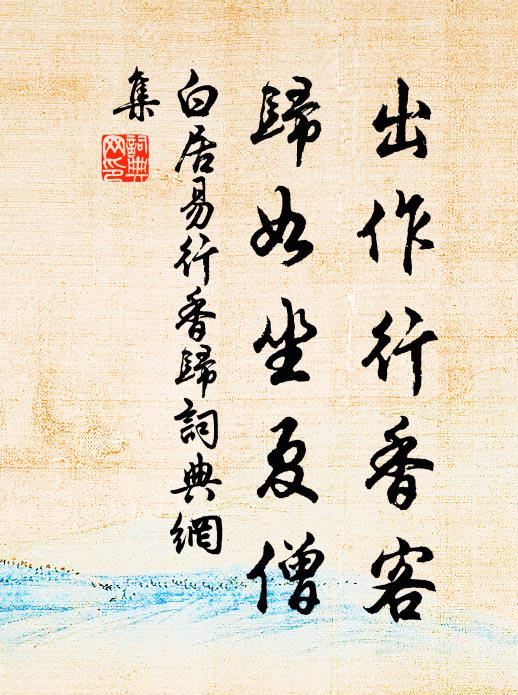 出作行香客
歸如坐夏僧
白居易行香歸詞典網
集
詞典
网印